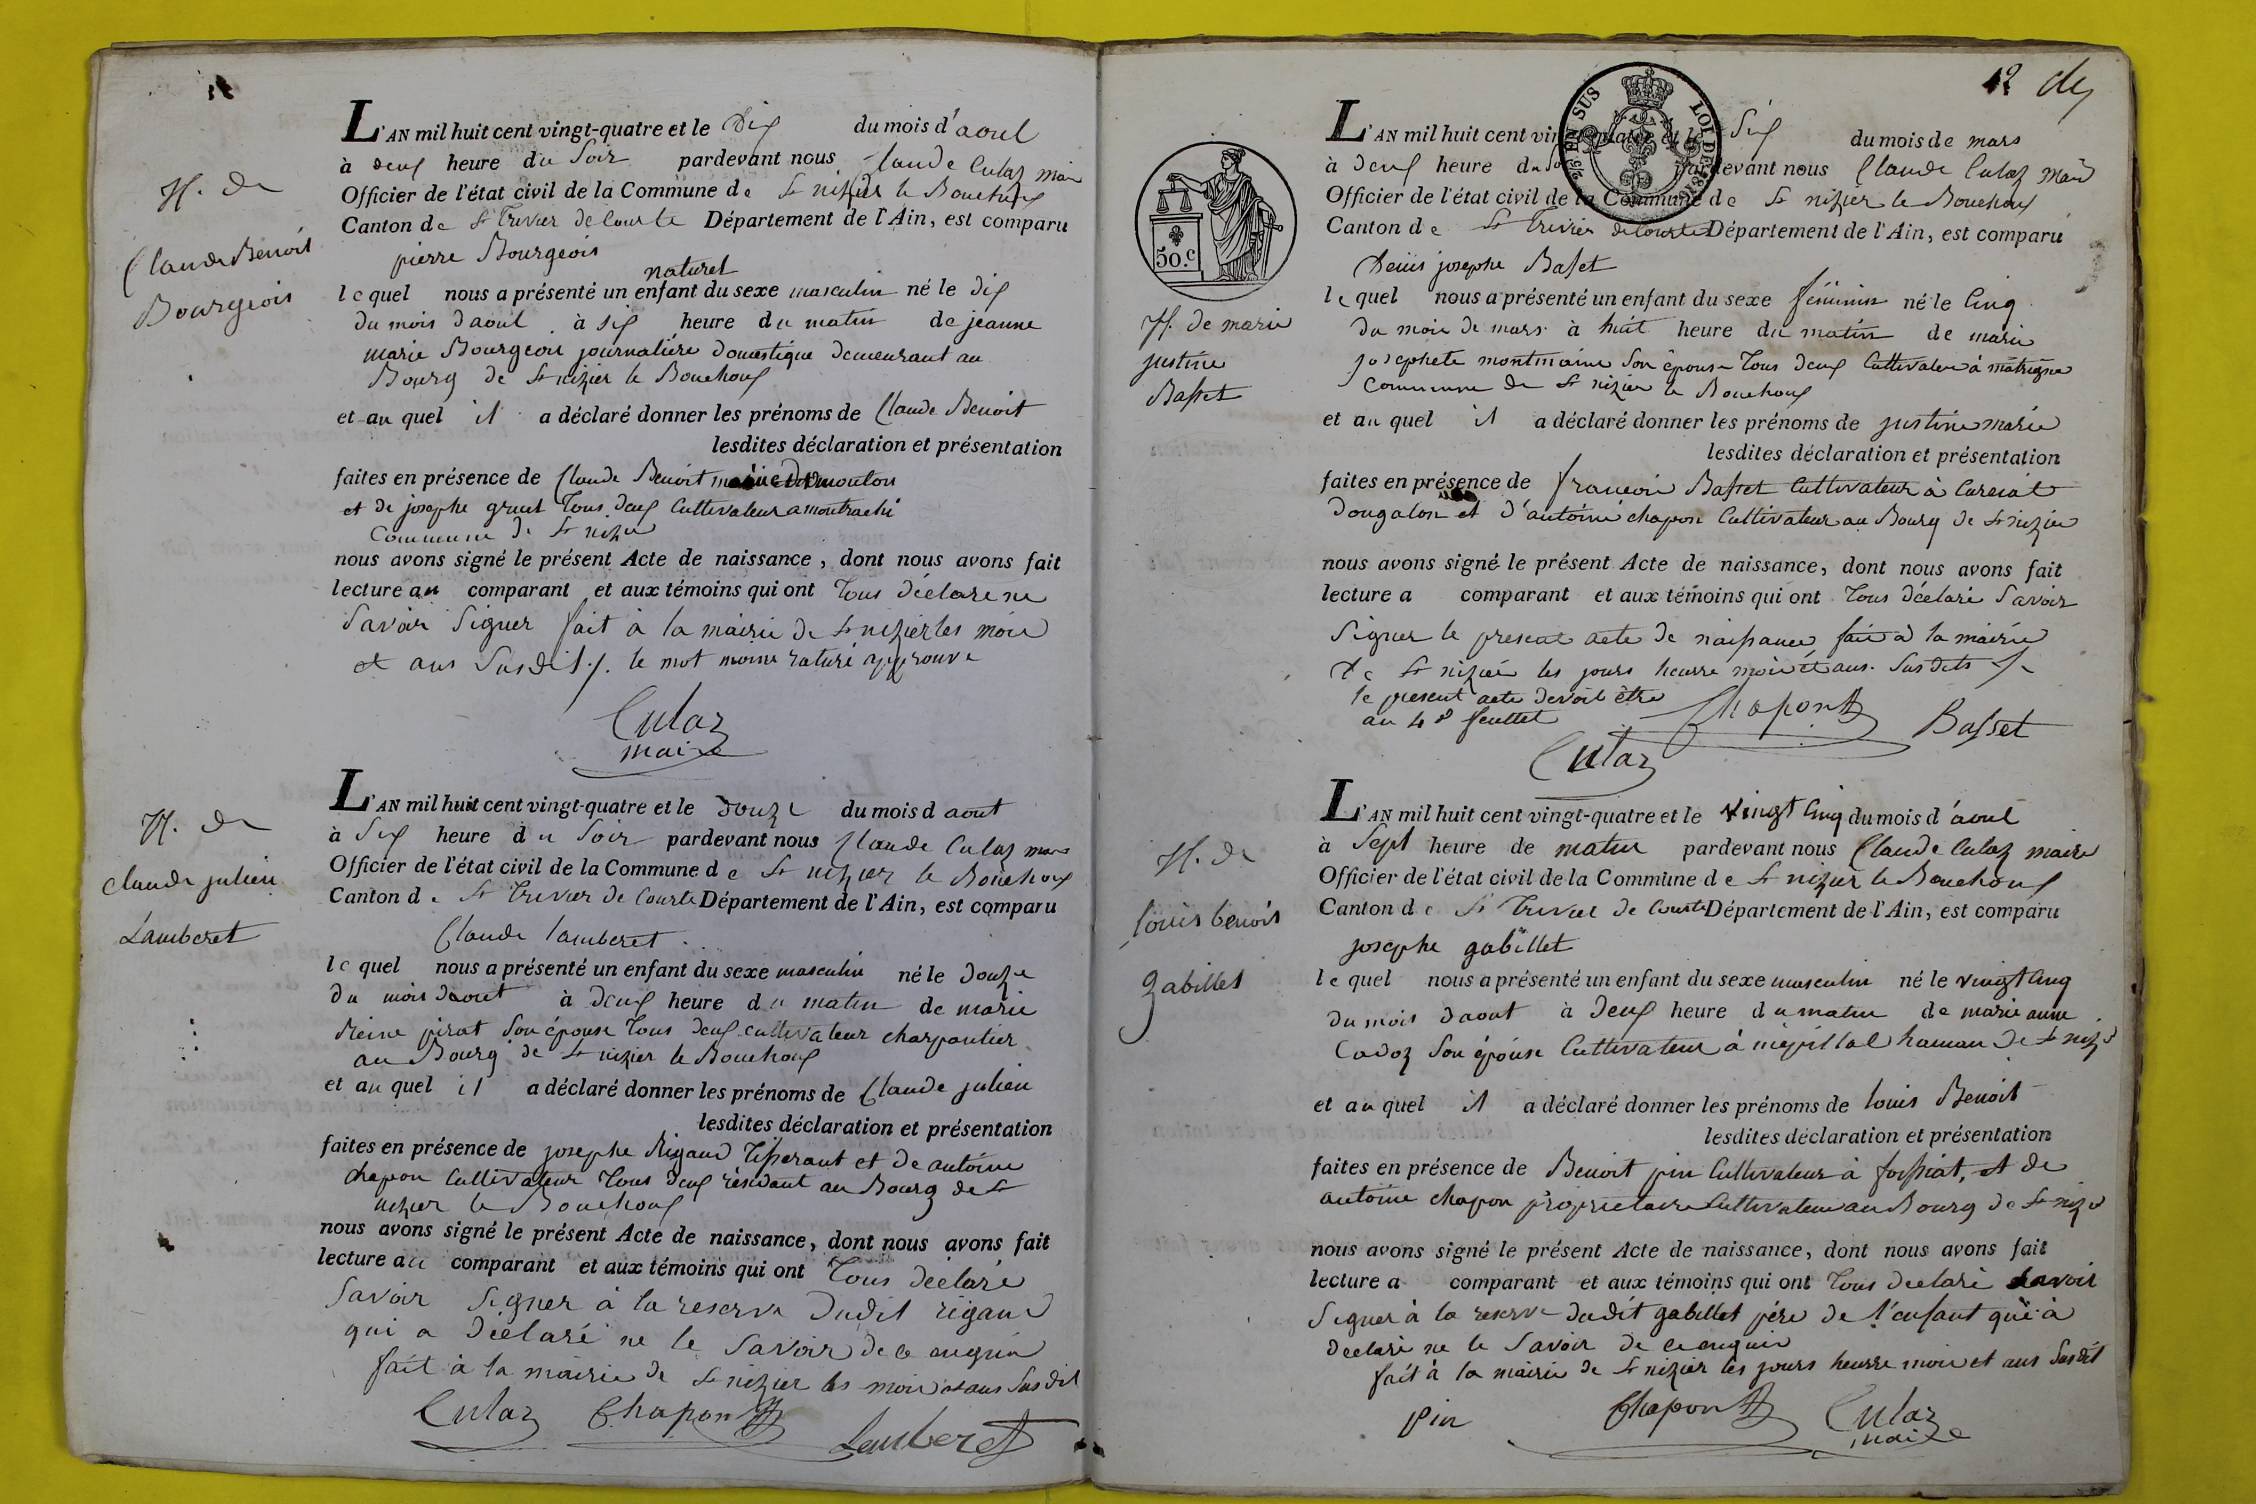 N. de
Claude Benoit
Bourgeois
L'AN mil huit cent vingt-quatre et le Dix du mois d'aout
à deux heure du Soir pardevant nous Claude Culaz maire
Officier de l'état civil de la Commune de St nizier le Bouchoux
Canton de St Trivier de Courte Département de l'Ain, est comparu
pierre Bourgeois
naturel
lequel nous a présenté un enfant du sexe masculin né le dix
du mois daout à six heure du matin de jeanne
marie Bourgeois journaliére domestique demeurant au
Bourg de St nizier le Bouchoux
et auquel il a déclaré donner les prénoms de Claude Benoit
lesdites déclaration et présentation
faites en présence de Claude Benoit
et de josephe Tous deux Cultivateur a montrachi
Commune de St nizier
nous avons signé le présent Acte de naissance, dont nous avons fait
lecture au comparant et aux témoins qui ont Tous déclaré ne
Savoir Signer fait à la mairie de St nizier les mois
et ans Susdit ./. le mot raturé approuvé
Culaz
maire
N. de
claude julien
Lamberet
L'AN mil huit cent vingt-quatre et le douze du mois d aout
à Six heure du Soir pardevant nous Claude Culaz maire
Officier de l'état civil de la Commune de St nizier le Bouchoux
Canton de St Trivier de Courte Département de l'Ain, est comparu
Claude lamberet
lequel nous a présenté un enfant du sexe masculin né le douze
du mois daout à deux heure du matin de marie
Reine pirat Son épouse Tous deux cultivateur charpentier
au Bourg de St nizier le Bouchoux
et auquel il a déclaré donner les prénoms de Claude julien
lesdites déclaration et présentation
faites en présence de josephe Rigaud Tisserant et de antoine
chapon Cultivateur Tous deux résidant au Bourg de St
nizier le Bouchoux
nous avons signé le présent Acte de naissance, dont nous avons fait
lecture au comparant et aux témoins qui ont Tous déclaré
Savoir Signer à la reserve dudit rigaud
qui a déclaré ne le Savoir de ce enquis
fait à la mairie de St nizier les mois et ans Susdit
Culaz Chapon Lamberet
12
EN SUS
LOI DE 1816
50.c
N. de marie
justine
Basset
L'AN mil huit cent vingt-quatre et le Six du mois de mars
à deux heure du Soir pardevant nous Claude Culaz maire
Officier de l'état civil de la Commune de St nizier le Bouchoux
Canton de St Trivier de Courtes Département de l'Ain, est comparu
Denis josephe Basset
lequel nous a présenté un enfant du sexe féminin né le Cinq
du mois de mars à huit heure du matin de marie
josephete montmaine Son épouse Tous deux Cultivateur à
Commune de St nizier le Bouchoux
et auquel il a déclaré donner les prénoms de justine marie
lesdites déclaration et présentation
faites en présence de francois Basset Cultivateur à Curciat
Dongalon et d'antoine chapon Cultivateur au Bourg de St nizier
nous avons signé le présent Acte de naissance, dont nous avons fait
lecture a comparant et aux témoins qui ont Tous déclaré Savoir
Signer le present acte de naissance, fait à la mairie
de St nizier les jours heurre mois et ans Susdits
le present acte devoit être
au 4 8 feuillet
Chapon Basset
Culaz
N. de
louis benoit
gabillet
L'AN mil huit cent vingt-quatre et le vingt Cinq du mois d'aout
à Sept heure de matin pardevant nous Claude Culaz maire
Officier de l'état civil de la Commune de St nizier le Bouchoux
Canton de St Trivier de Courte Département de l'Ain, est comparu
josephe gabillet
lequel nous a présenté un enfant du sexe masculin né le vingt Cinq
du mois daout à deux heure du matin de marie anne
Cadoz Son épouse Cultivateur à hamau de St nizier
et auquel il a déclaré donner les prénoms de louis Benoit
lesdites déclaration et présentation
faites en présence de Benoit pin Cultivateur à foissiat, et de
antoine chapon proprietaire Cultivateur au Bourg de St nizier
nous avons signé le présent Acte de naissance, dont nous avons fait
lecture a comparant et aux témoins qui ont Tous declaré Savoir
Signer à la reserve dudit gabillet pére de l'enfant qui à
declaré ne le Savoir de ce enquis
fait à la mairie de St nizier les jours heurre mois et ans Susdit
pin Chapon Culaz
maire